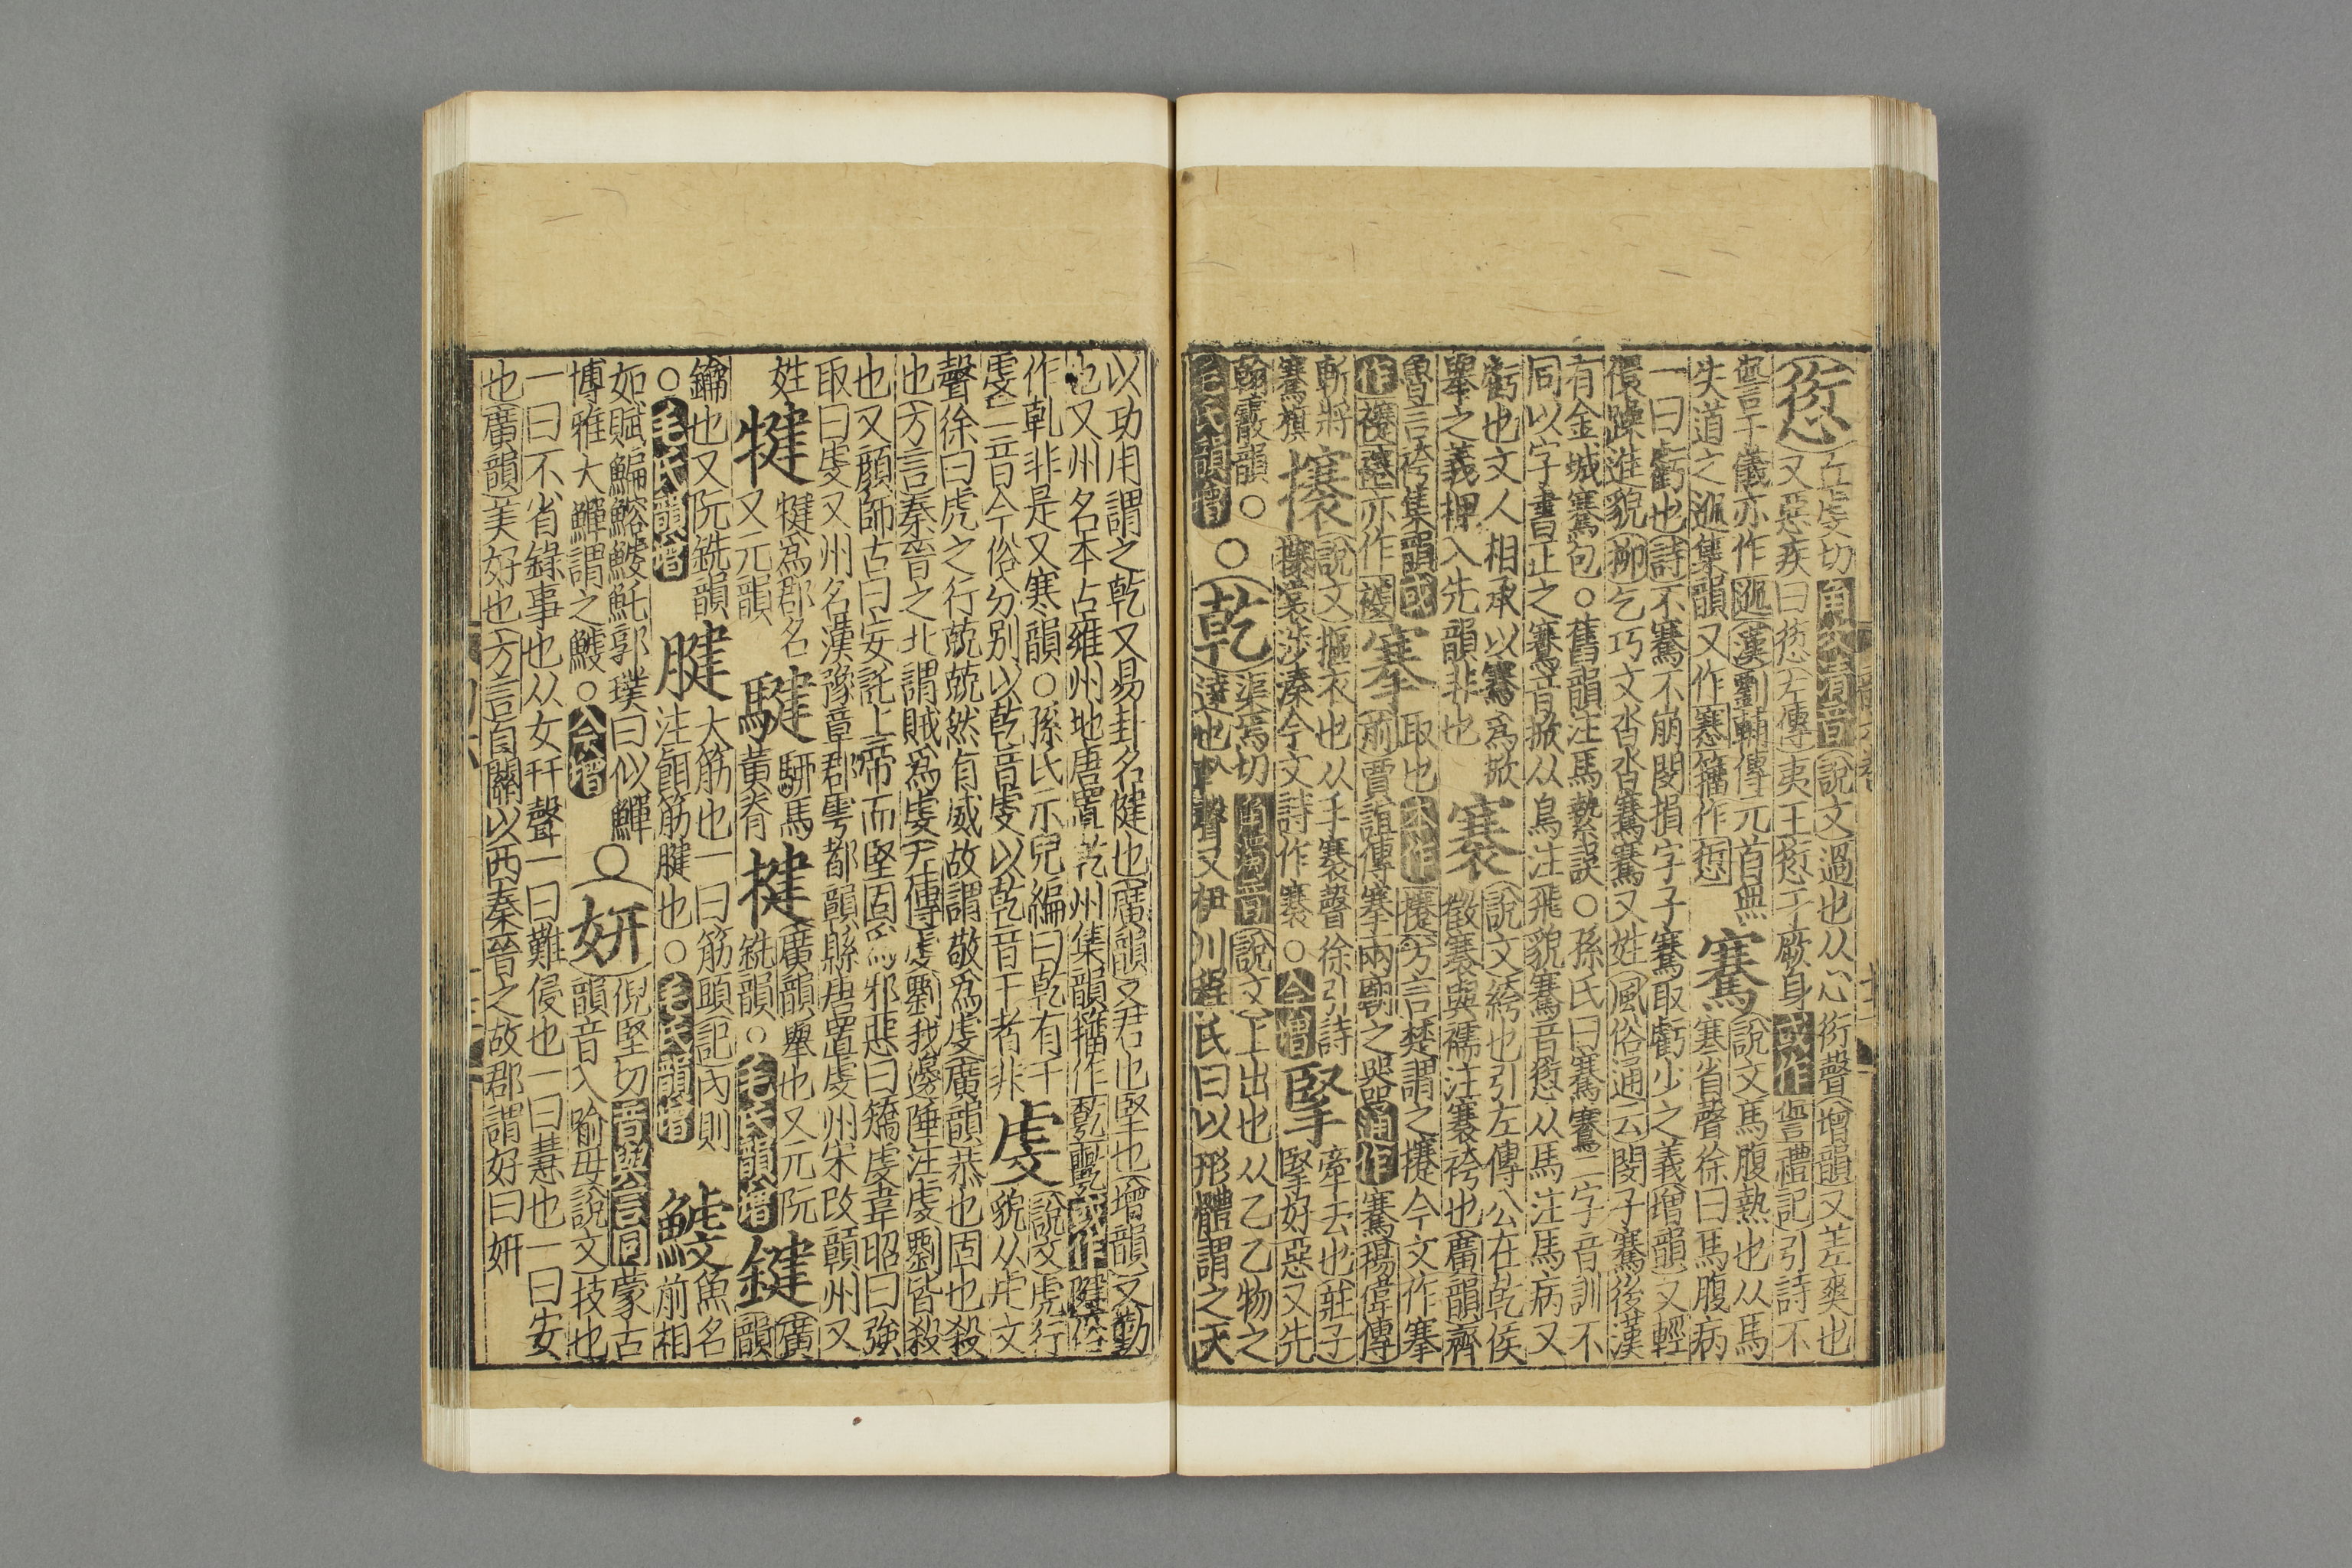 愆 丘虔切 角次清音 說文過也从心衍聲增韻又差爽也
又惡疾曰愆左傳夷王愆于厥身或作諐禮記引詩不
諐于儀亦作𨓵漢劉輔傳元首無
失道之𨓵集韻又作𡫸籀作𠎝 騫 說文馬腹熱也从馬
寒省聲徐曰馬腹病
一曰虧也詩不騫不崩閔損字子騫取虧少之義增韻又輕
儇躁進貌柳乞巧文沓沓騫騫又姓風俗通云閔子騫後漢
有金城騫包○舊韻注馬縶誤○孫氏曰騫鶱二字音訓不
同以字書正之鶱音掀从鳥注飛貌騫音愆从馬注馬病又
虧也文人相承以騫爲掀
舉之義押入先韻非也 褰 說文絝也引左傳公在乾侯
徵褰與襦注褰袴也廣韻齊
魯言袴集韻或
作𧞫䙭亦作襐 搴 取也本作攓方言楚謂之攓今文作搴
前賈誼傳搴兩廟之器通作騫揚雄傳
斬將
騫旗 攐 說文摳衣也从手褰聲徐引詩
攐裳涉溱今文詩作褰○今增 掔 牽去也莊子
掔好惡又先
翰霰韻○
毛氏韻增○乾 渠焉切 角濁音 說文上出也从乙乙物之
達也倝聲又伊川程氏曰以形體謂之天
以功用謂之乾又易卦名健也廣韻又君也堅也增韻又勤
也又州名本占雍州地唐置乾州集韻籀作𠃵或作漧俗
作乹非是又寒韻○孫氏示兒編曰乾有干
虔二音今俗分別以乾音虔以乹音干者非 虔 說文虎行
貌从虍文
聲徐曰虎之行兢兢然有威故謂敬爲虔廣韻恭也固也殺
也方言秦晉之北謂賊爲虔左傳虔劉我邊陲注虔劉皆殺
也又顏師古曰妄託上帝而堅固爲邪惡曰矯虔韋昭曰強
取曰虔又州名漢豫章郡雩都韻縣唐置虔州宋改贛州又
姓 犍 犍爲郡名
又元韻 騝 騮馬
黃脊 揵 廣韻舉也又元阮
銑韻○毛氏韻增 鍵 廣韻
鑰也又阮銑韻
○毛氏韻增 腱 大筋也一曰筋頭記內則
注餌筋腱也○毛氏韻增 䱭 魚名
前相
如賦鰅鰫鰬魠郭璞曰似鱓
博雅大鱓謂之鰬○今增○妍 倪堅切 音與言同 蒙古
韻音入喻母說文技也
一曰不省錄事也从女幵聲一曰難侵也一曰惠也一曰安
也廣韻美好也方言自關以西秦晉之故郡謂好曰妍